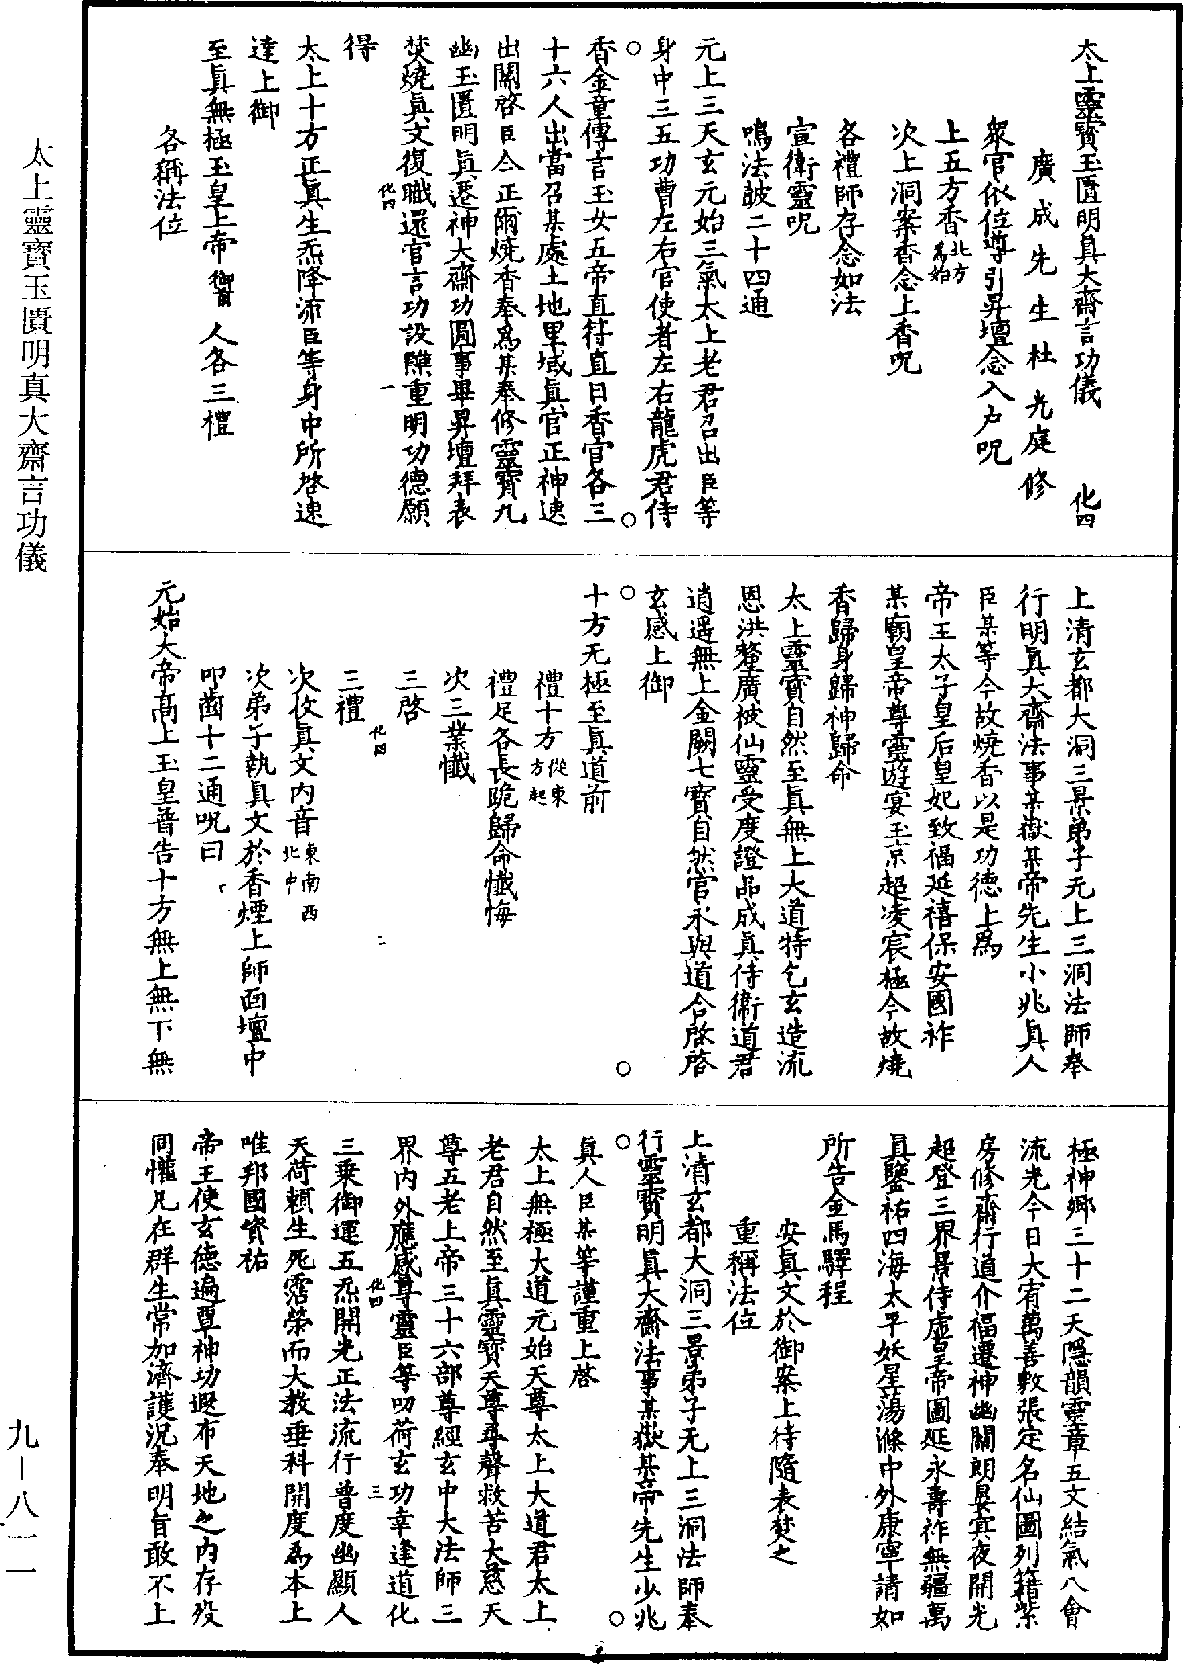 太上靈寶玉匱明真大齋言功儀　化四
廣成先生杜光庭修
眾官依位導引昇壇念入户呪
上五方香北方為始
次上洞案香念上香呪
各禮師存念如法
宣衛靈呪
鳴法皷二十四通
元上三天玄元始三氣太上老君召出臣等
身中三五功曹左右官使者左右龍虎君侍
香金童傳言玉女五帝直符直日香官各三
十六人出當召某處土地里域真官正神速
出關啓臣今正爾燒香奉為某奉修靈寶九
幽玉匱明真遷神大齋功圓事畢昇壇拜表
焚燒真文復職還官言功設醮重明功德願
化四　一
得
太上十方正真生炁降流臣等身中所啓速
達上御
至真無極玉皇上帝御前　人各三禮
各稱法位
上清玄都大洞三景弟子无上三洞法師奉
行明真大齋法事某嶽某帝先生小兆真人
臣某等今故燒香以是功德上為
帝王太子皇后皇妃致福延禧保安國祚
某廟皇帝尊靈遊宴玉京超凌宸極今故燒
香歸身歸神歸命
太上靈寶自然至真無上大道特乞玄造流
恩洪釐廣被仙靈受度證品成真侍衛道君
逍遥無上金闕七寶自然宮永與道合啓啓
玄感上御
十方无極至真道前
禮十方從東方起
禮足各長跪歸命懺悔
次三業懺
三啓
三禮
化四　二
次收真文内音東南西北中
次弟子執真文於香煙上師面壇中
叩齒十二通呪曰
元始大帝高上玉皇普告十方無上無下無
極神鄉三十二天隱韻靈章五文結氣八會
流光今日大宥萬善敷張定名仙圖列籍紫
房修齋行道介福遷神幽關朗晏冥夜開光
超登三界景侍虛皇帝圖延永壽祚無疆萬
真鑒祐四海太平妖星蕩滌中外康寧請如
所告金馬驛程
安真文於御案上待隨表焚之
重稱法位
上清玄都大洞三景弟子无上三洞法師奉
行靈寶明真大齋法事某嶽某帝先生少兆
真人臣某等謹重上啓
太上無極大道元始天尊太上大道君太上
老君自然至真靈寶天尊尋聲救苦大慈天
尊五老上帝三十六部尊經玄中大法師三
界内外應感尊靈臣等叨荷玄功幸逢道化
化四　三
三乘御運五炁開光正法流行普度幽顯人
天荷賴生死霑榮而大教垂科開度為本上
唯邦國資祐
帝王使玄德遍覃神功遐布天地之内存殁
同懽凡在群生常加濟護況奉明旨敢不上
太上靈寶玉匱明真大齋言功儀
九—八一一